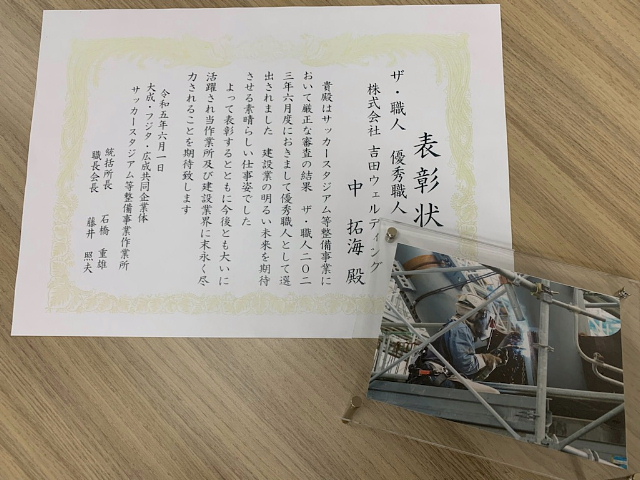 表彰状
ザ・職人 優秀職人
株式会社 吉田ウェルディング
中 拓海 殿
貴殿はサッカースタジアム等整備事業に
おいて厳正な審査の結果 ザ・職人二〇二
三年六月度におきまして優秀職人として選
出されました 建設業の明るい未来を期待
させる素晴らしい仕事姿でした
よって表彰するとともに今後とも大いに
活躍され当作業所及び建設業界に末永く尽
力されることを期待致します
令和五年六月一日
大成・フジタ・広成共同企業体
サッカースタジアム等整備事業作業所
統括所長 石橋 重雄
職長会長 藤井 照夫